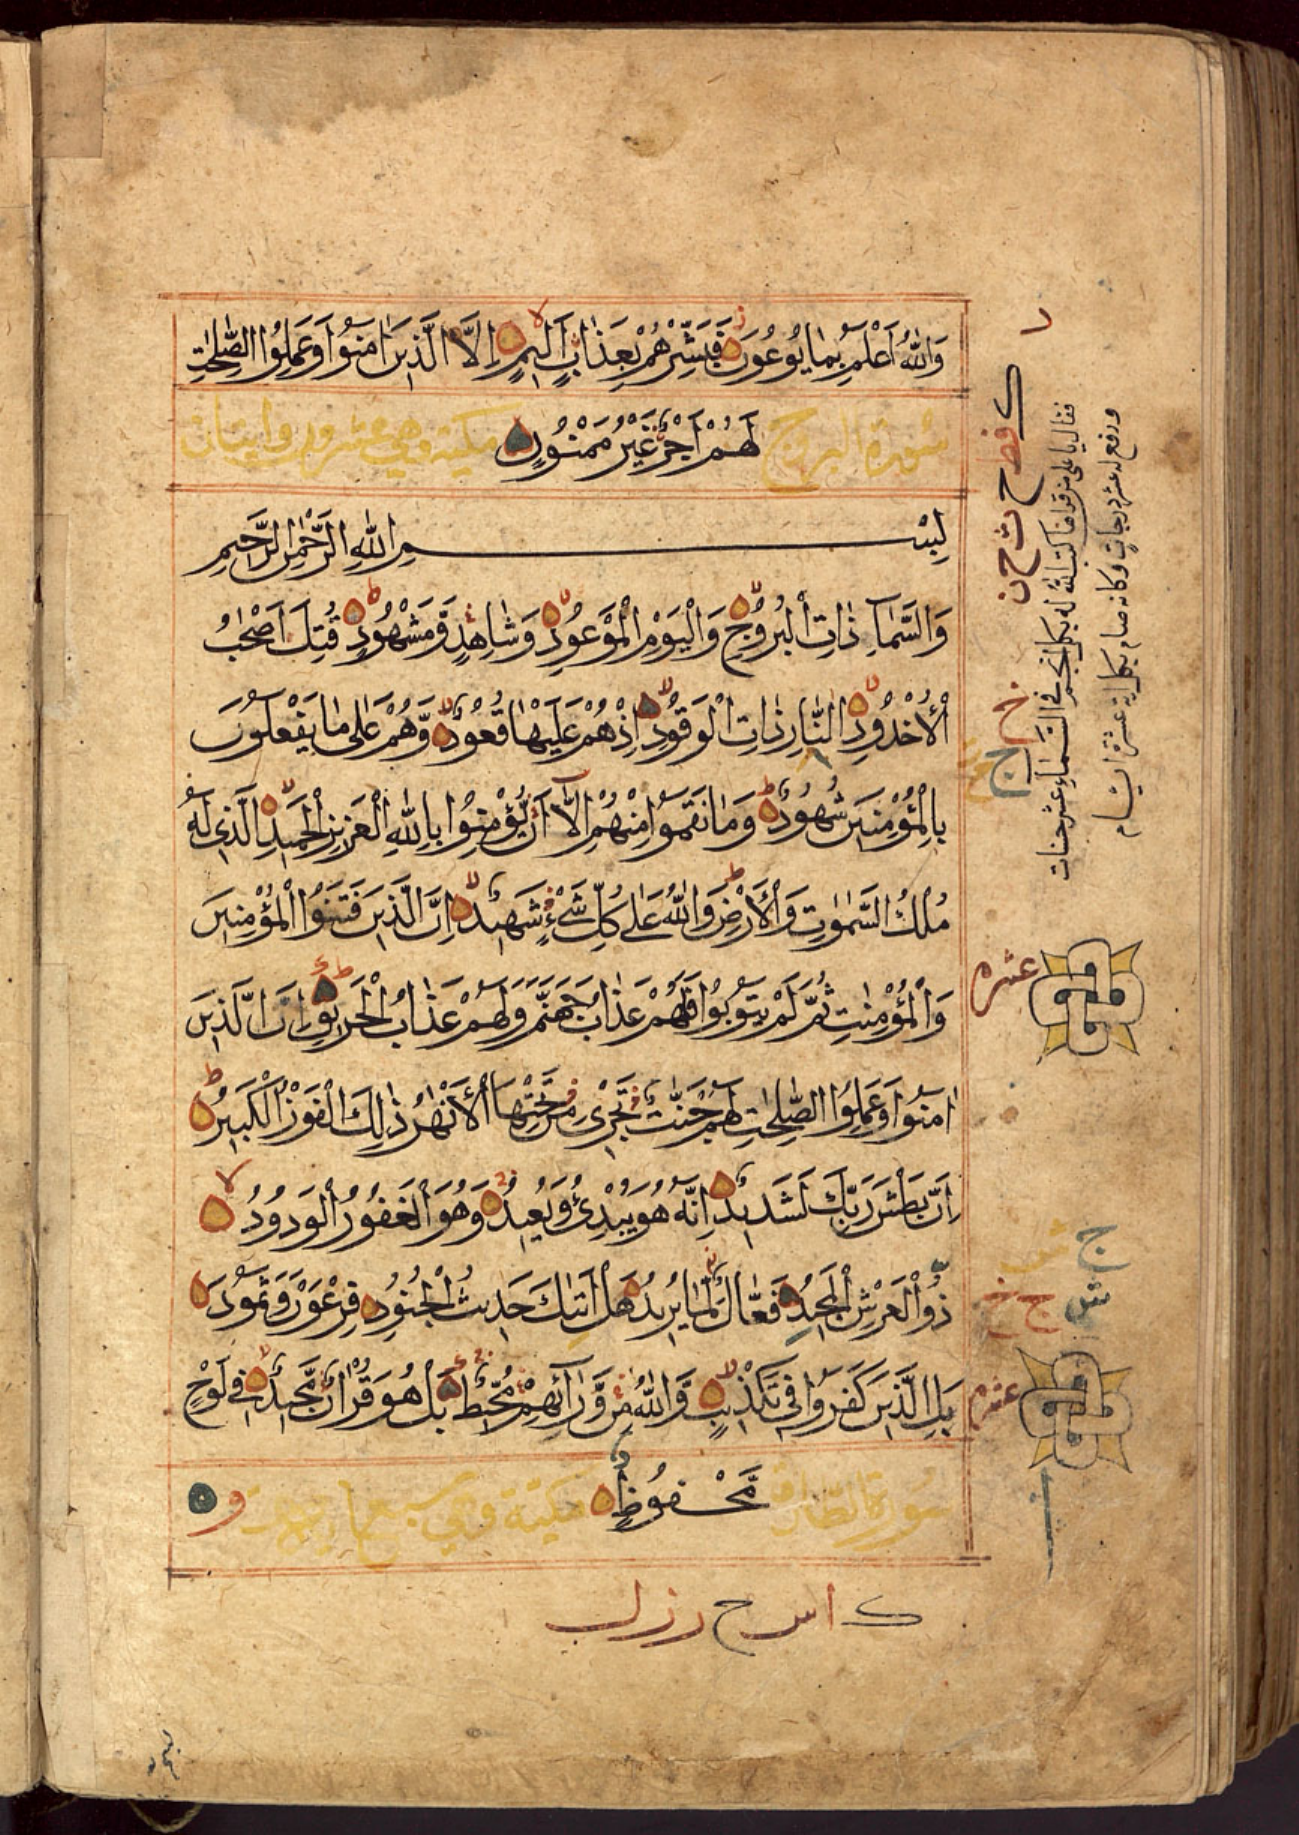 وَاللّٰهُ اَعْلَمُ بِمَا يُوعُونَ فَبَشِّرْهُمْ بِعَذَابٍ اَلِيمٍ اِلَّا الَّذِينَ اٰمَنُوا وَعَمِلُوا الصّٰلِحٰتِ
سُورَة البروج لَهُمْ اَجْرٌ غَيْرُ مَمْنُونٍ مكية وهي عشرون وايتان
بِسْمِ اللّٰهِ الرَّحْمٰنِ الرَّحِيمِ
وَالسَّمَاۤءِ ذَاتِ الْبُرُوجِ وَالْيَوْمِ الْمَوْعُودِ وَشَاهِدٍ وَّمَشْهُودٍ قُتِلَ اَصْحٰبُ
الْاُخْدُودِ النَّارِ ذَاتِ الْوَقُودِ اِذْ هُمْ عَلَيْهَا قُعُودٌ وَّهُمْ عَلٰى مَا يَفْعَلُونَ
بِالْمُؤْمِنِينَ شُهُودٌ وَمَا نَقَمُوا مِنْهُمْ اِلَّاۤ اَنْ يُّؤْمِنُوا بِاللّٰهِ الْعَزِيزِ الْحَمِيدِ الَّذِي لَهُ
مُلْكُ السَّمٰوٰتِ وَالْاَرْضِ وَاللّٰهُ عَلٰى كُلِّ شَيْءٍ شَهِيدٌ اِنَّ الَّذِينَ فَتَنُوا الْمُؤْمِنِينَ
وَالْمُؤْمِنٰتِ ثُمَّ لَمْ يَتُوبُوا فَلَهُمْ عَذَابُ جَهَنَّمَ وَلَهُمْ عَذَابُ الْحَرِيقِ اِنَّ الَّذِينَ
اٰمَنُوا وَعَمِلُوا الصّٰلِحٰتِ لَهُمْ جَنّٰتٌ تَجْرِي مِنْ تَحْتِهَا الْاَنْهٰرُ ذٰلِكَ الْفَوْزُ الْكَبِيرُ
اِنَّ بَطْشَ رَبِّكَ لَشَدِيدٌ اِنَّهُ هُوَ يُبْدِئُ وَيُعِيدُ وَهُوَ الْغَفُورُ الْوَدُودُ
ذُو الْعَرْشِ الْمَجِيدُ فَعَّالٌ لِّمَا يُرِيدُ هَلْ اَتٰىكَ حَدِيثُ الْجُنُودِ فِرْعَوْنَ وَثَمُودَ
بَلِ الَّذِينَ كَفَرُوا فِي تَكْذِيبٍ وَّاللّٰهُ مِنْ وَّرَاۤئِهِمْ مُّحِيطٌ بَلْ هُوَ قُرْاٰنٌ مَّجِيدٌ فِي لَوْحٍ
سورة الطارق مَّحْفُوظٍ مكية وهي
ك
عشره
عشره